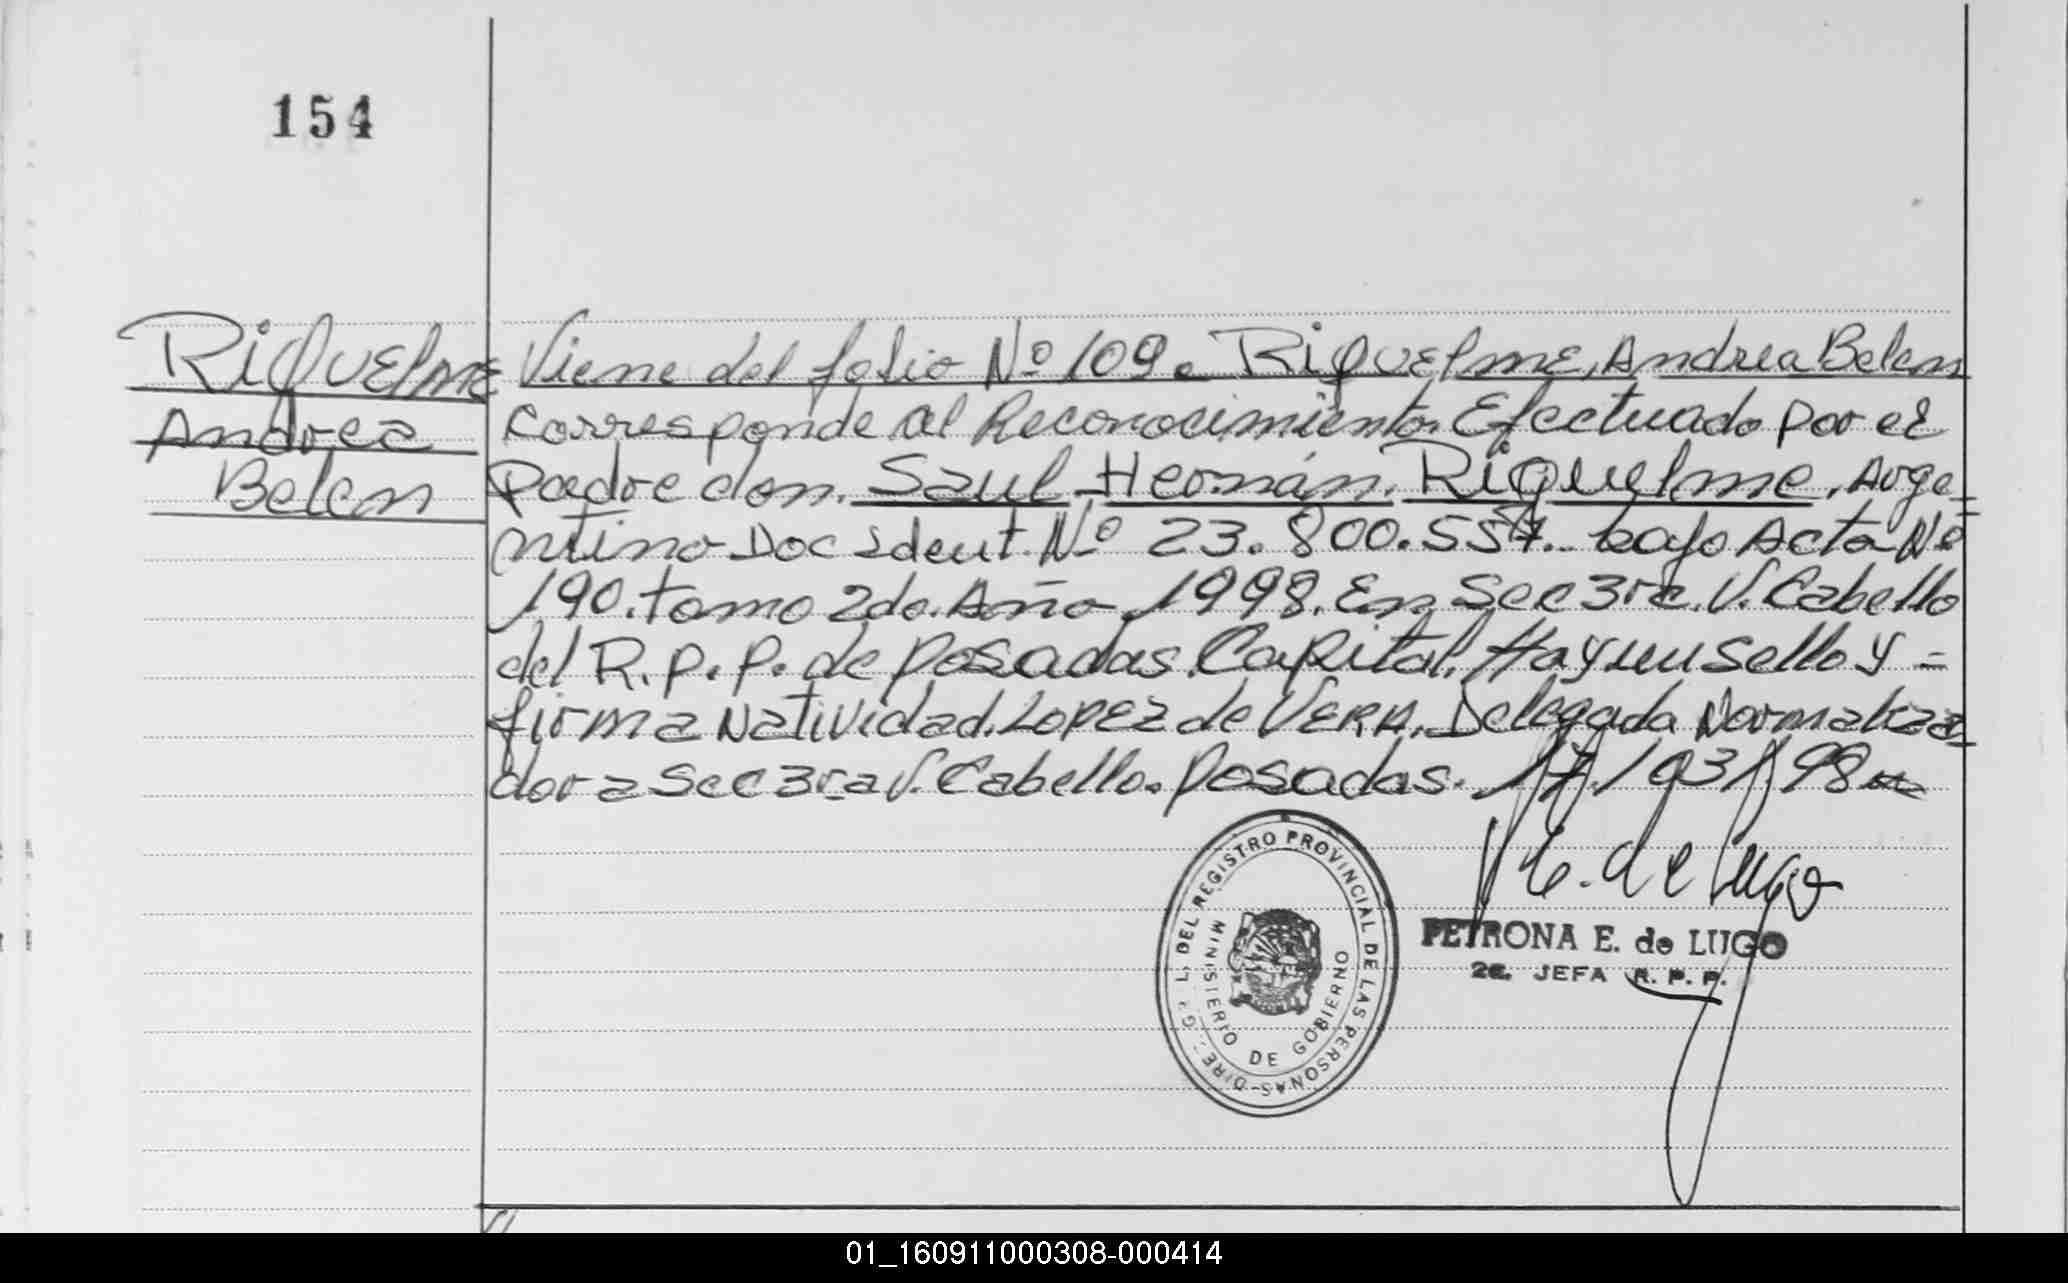 154
Riquelme
Andrea
Belen
Viene del folio Nº 109. Riquelme, Andrea Belen
corresponde al Reconocimiento Efectuado por el
Padre don. Saul Hernán. Riquelme. Arge-
ntino Doc Ident. Nº 23.800.557. bajo Acta Nº
190. tomo 2do. Año 1998. En Sec 3ra. V. Cabello
del R.P.P. de Posadas. Capital. Hay un sello y =
firma Natividad. Lopez de VERA. Delegada Normaliza-
dora Sec 3ra V. Cabello. Posadas. 17/03/98
DIREC. G.L. DEL REGISTRO PROVINCIAL DE LAS PERSONAS-
MINISTERIO DE GOBIERNO
E. de Lugo
PETRONA E. de LUGO
2a. JEFA R.P.P.
01_160911000308-000414